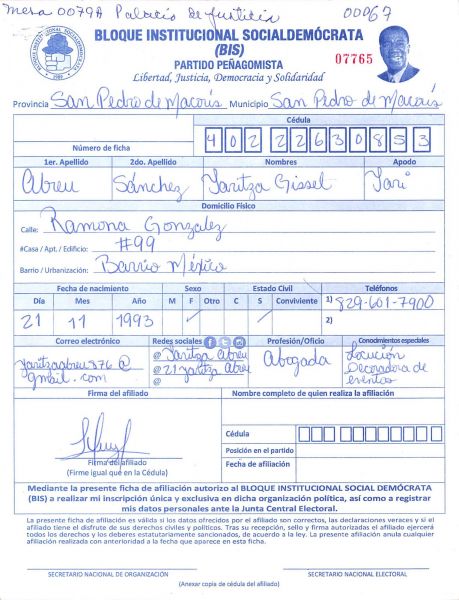 Mesa 0079A Palacio de Justicia 00067
BLOQUE INSTITUCIONAL SOCIALDEMÓCRATA
(BIS)
PARTIDO PEÑAGOMISTA
Libertad, Justicia, Democracia y Solidaridad
07765
Provincia San Pedro de Macorís Municipio San Pedro de Macorís
Cédula
Número de ficha 40222630853
1er. Apellido 2do. Apellido Nombres Apodo
Abreu Sánchez Yaritza Gissel Yari
Domicilio Físico
Calle: Ramona Gonzalez
#Casa / Apt. / Edificio: #99
Barrio / Urbanización: Barrio México
Fecha de nacimiento Sexo Estado Civil Teléfonos
Día Mes Año M F Otro C S Conviviente 1) 829-601-7900
21 11 1993 2)
Correo electrónico Redes sociales Profesión/Oficio Conocimientos especiales
yaritzaabreu876@ @ Yaritza Abreu Abogada Locución
gmail.com @ 21 yaritza Abreu Decoradora de
@ eventos
Firma del afiliado Nombre completo de quien realiza la afiliación
Cédula
Posición en el partido
Firma del afiliado Fecha de afiliación
(Firme igual que en la Cédula)
Mediante la presente ficha de afiliación autorizo al BLOQUE INSTITUCIONAL SOCIAL DEMÓCRATA
(BIS) a realizar mi inscripción única y exclusiva en dicha organización política, así como a registrar
mis datos personales ante la Junta Central Electoral.
La presente ficha de afiliación es válida si los datos ofrecidos por el afiliado son correctos, las declaraciones veraces y si el
afiliado tiene el disfrute de sus derechos civiles y políticos. Tras su recepción, sello y firma autorizada el afiliado ejercerá
todos los derechos y los deberes estatutariamente sancionados, de acuerdo a la ley. La presente afiliación anula cualquier
afiliación realizada con anterioridad a la fecha que aparece en esta ficha.
SECRETARIO NACIONAL DE ORGANIZACIÓN SECRETARIO NACIONAL ELECTORAL
(Anexar copia de cédula del afiliado)